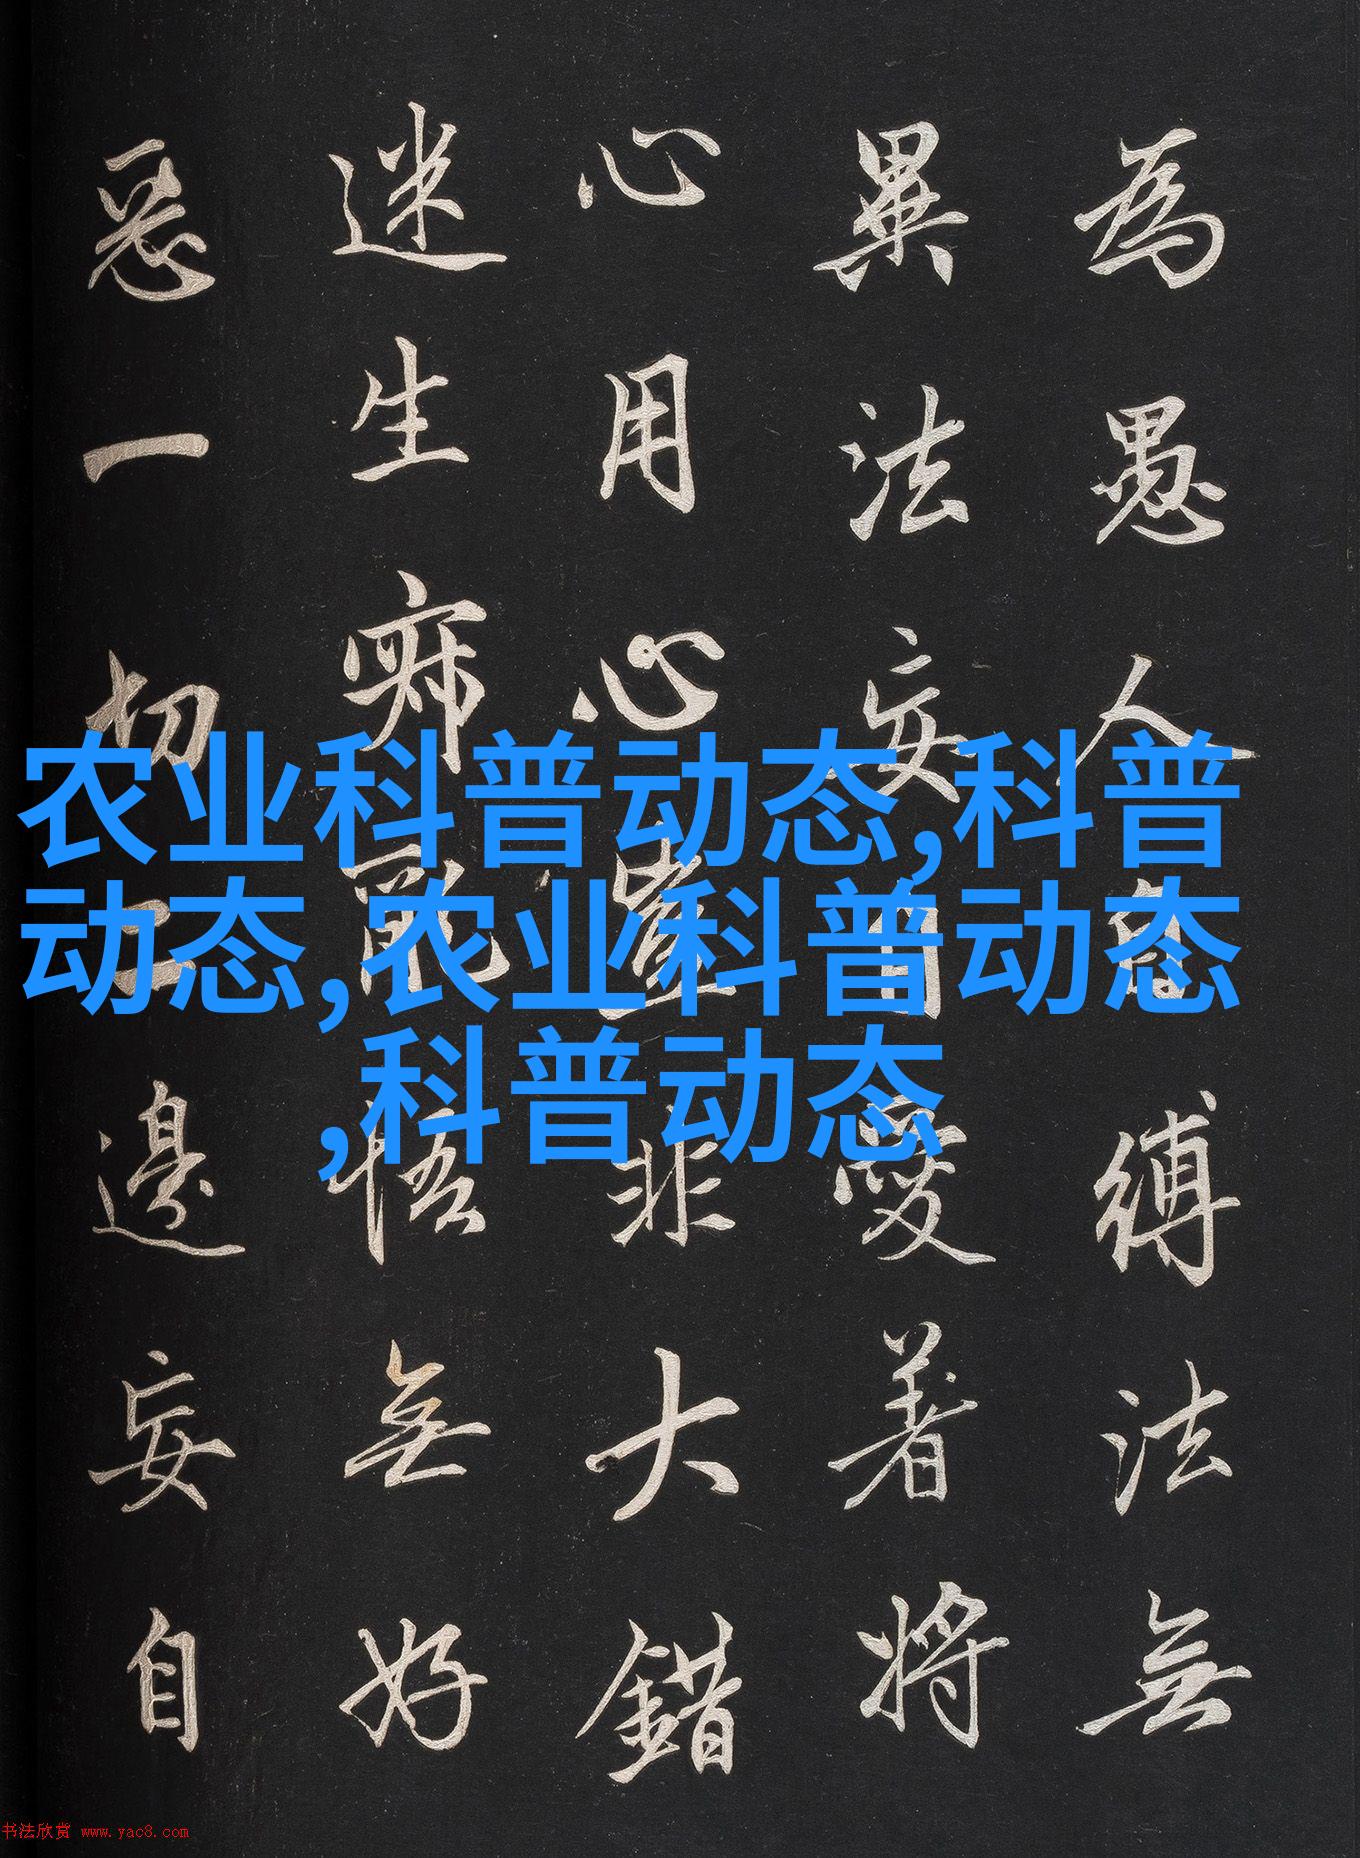 為愚人自縛法無
異法妄自愛著將
心用心豈非大錯
迷生寂亂悟無好
惡一切二邊妄自
农业科普动态,科普
动态,农业科普动态
,科普动态
书法欣赏 www.yac8.com